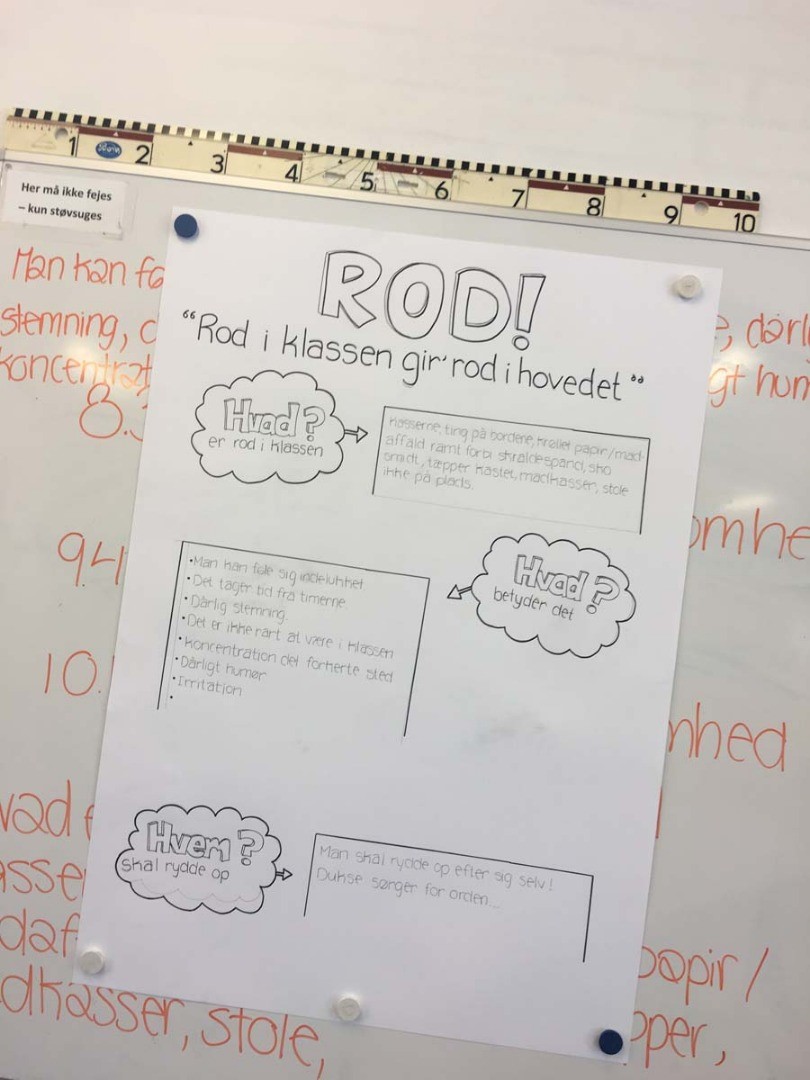 1 2 3 4 5 6 7 8 9 10
Her må ikke fejes
– kun støvsuges
Man kan
stemning,
8.
9.4
10.
nhed
papir /
dkasser, stole,
ROD!
"Rod i klassen gir' rod i hovedet"
Hvad?
er rod i klassen
kasserne, ting på bordene, krøllet papir/mad-
affald ramt forbi skraldespand, sko
smidt, tæpper kastet, madkasser, stole
ikke på plads.
Hvad?
betyder det
•Man kan føle sig indelukket.
•Det tager tid fra timerne
•Dårlig stemning.
•Det er ikke rart at være i klassen
•Koncentration det forkerte sted
•Dårligt humør
•Irritation
•
Hvem?
skal rydde op
Man skal rydde op efter sig selv!
Dukse sørger for orden...